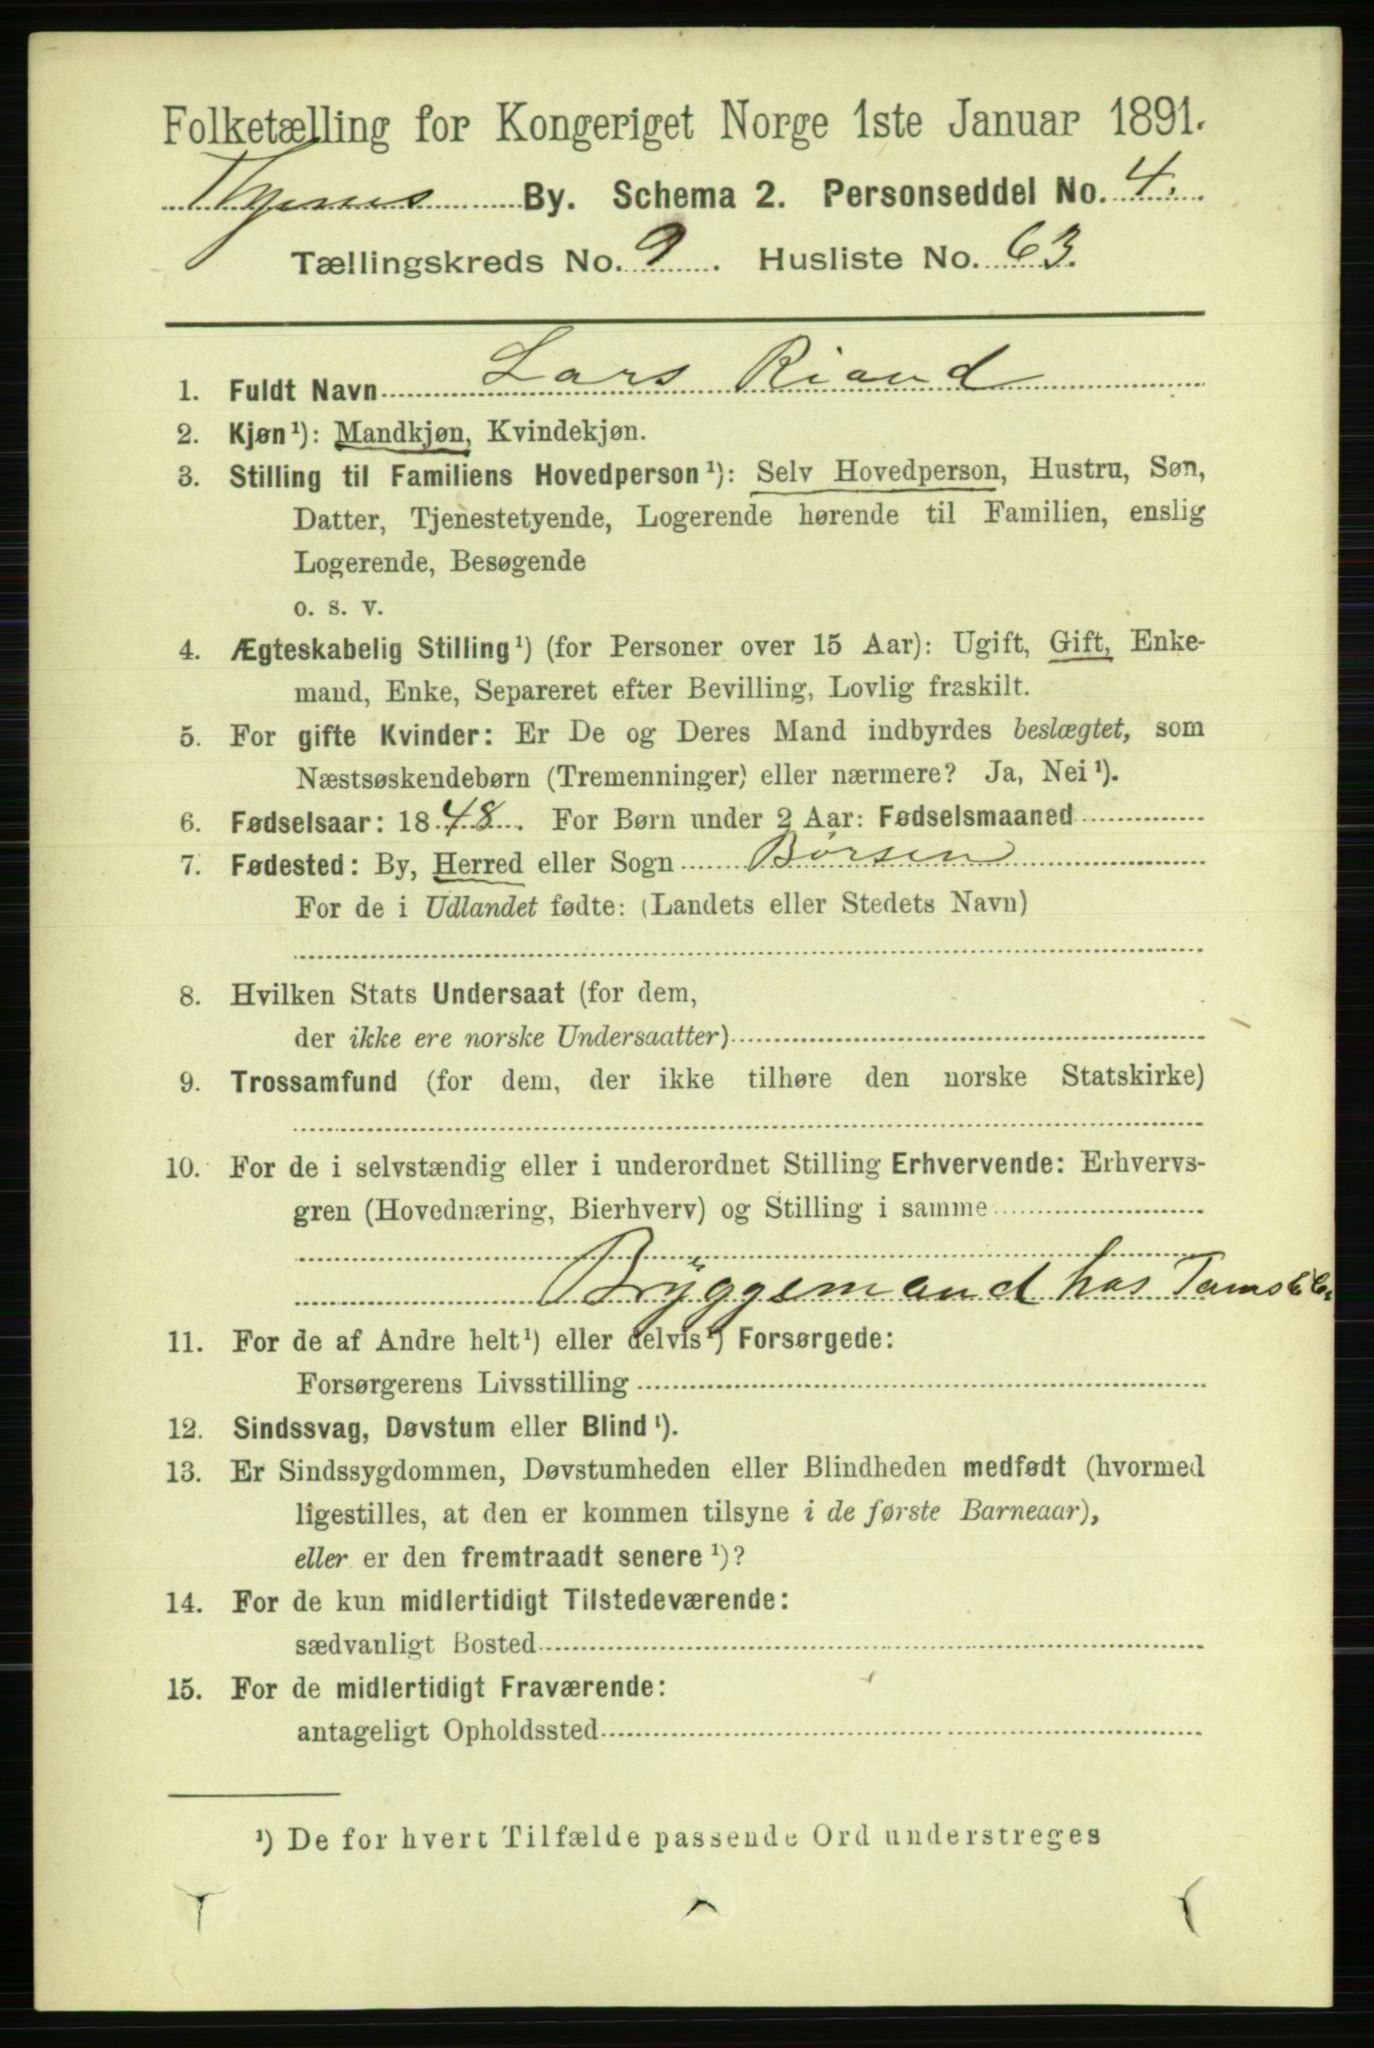 Folketælling for Kongeriget Norge 1ste Januar 1891.
Thjems By. Schema 2. Personseddel No. 4.
Tællingskreds No. 9. Husliste No. 63.
1. Fuldt Navn Lars Riand
2. Kjøn¹): Mandkjøn, Kvindekjøn.
3. Stilling til Familiens Hovedperson¹): Selv Hovedperson, Hustru, Søn,
Datter, Tjenestetyende, Logerende hørende til Familien, enslig
Logerende, Besøgende
o. s. v.
4. Ægteskabelig Stilling¹) (for Personer over 15 Aar): Ugift, Gift, Enke-
mand, Enke, Separeret efter Bevilling, Lovlig fraskilt.
5. For gifte Kvinder: Er De og Deres Mand indbyrdes beslægtet, som
Næstsøskendebørn (Tremenninger) eller nærmere? Ja, Nei¹).
6. Fødselsaar: 1848. For Børn under 2 Aar: Fødselsmaaned
7. Fødested: By, Herred eller Sogn Børsen
For de i Udlandet fødte: (Landets eller Stedets Navn)
8. Hvilken Stats Undersaat (for dem,
der ikke ere norske Undersaatter)
9. Trossamfund (for dem, der ikke tilhøre den norske Statskirke)
10. For de i selvstændig eller i underordnet Stilling Erhvervende: Erhvervs-
gren (Hovednæring, Bierhverv) og Stilling i samme
Bryggemand hos
11. For de af Andre helt¹) eller delvis¹) Forsørgede:
Forsørgerens Livsstilling
12. Sindssvag, Døvstum eller Blind¹).
13. Er Sindssygdommen, Døvstumheden eller Blindheden medfødt (hvormed
ligestilles, at den er kommen tilsyne i de første Barneaar),
eller er den fremtraadt senere¹)?
14. For de kun midlertidigt Tilstedeværende:
sædvanligt Bosted
15. For de midlertidigt Fraværende:
antageligt Opholdssted
¹) De for hvert Tilfælde passende Ord understreges